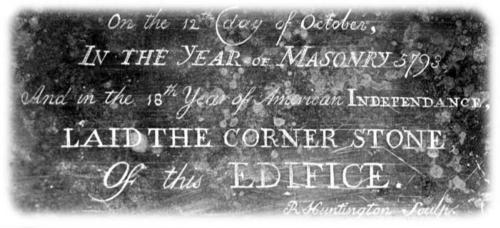 On the 12th day of October,
IN THE YEAR OF MASONRY 5793
And in the 18th Year of American INDEPENDANCE,
LAID THE CORNER STONE
Of this EDIFICE.
R. Huntington Sculp.